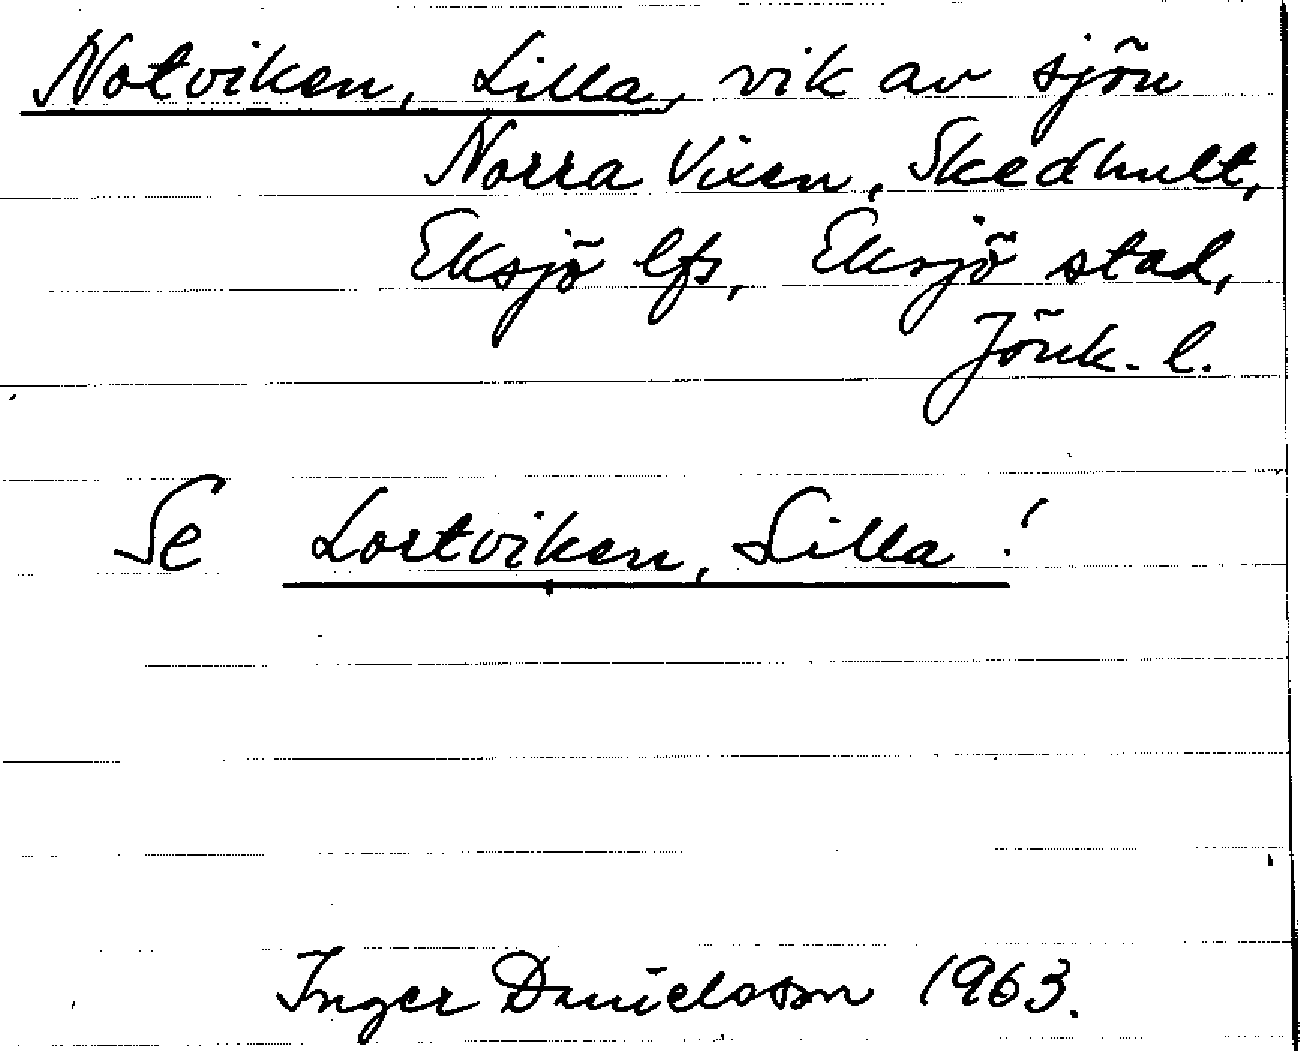 Notviken, Lilla, vik av sjön
Norra Vixen, Skedhult,
Eksjö lfs, Eksjö stad,
Jönk. l.
Se Lortviken, Lilla!
Inger Danielsson 1963.